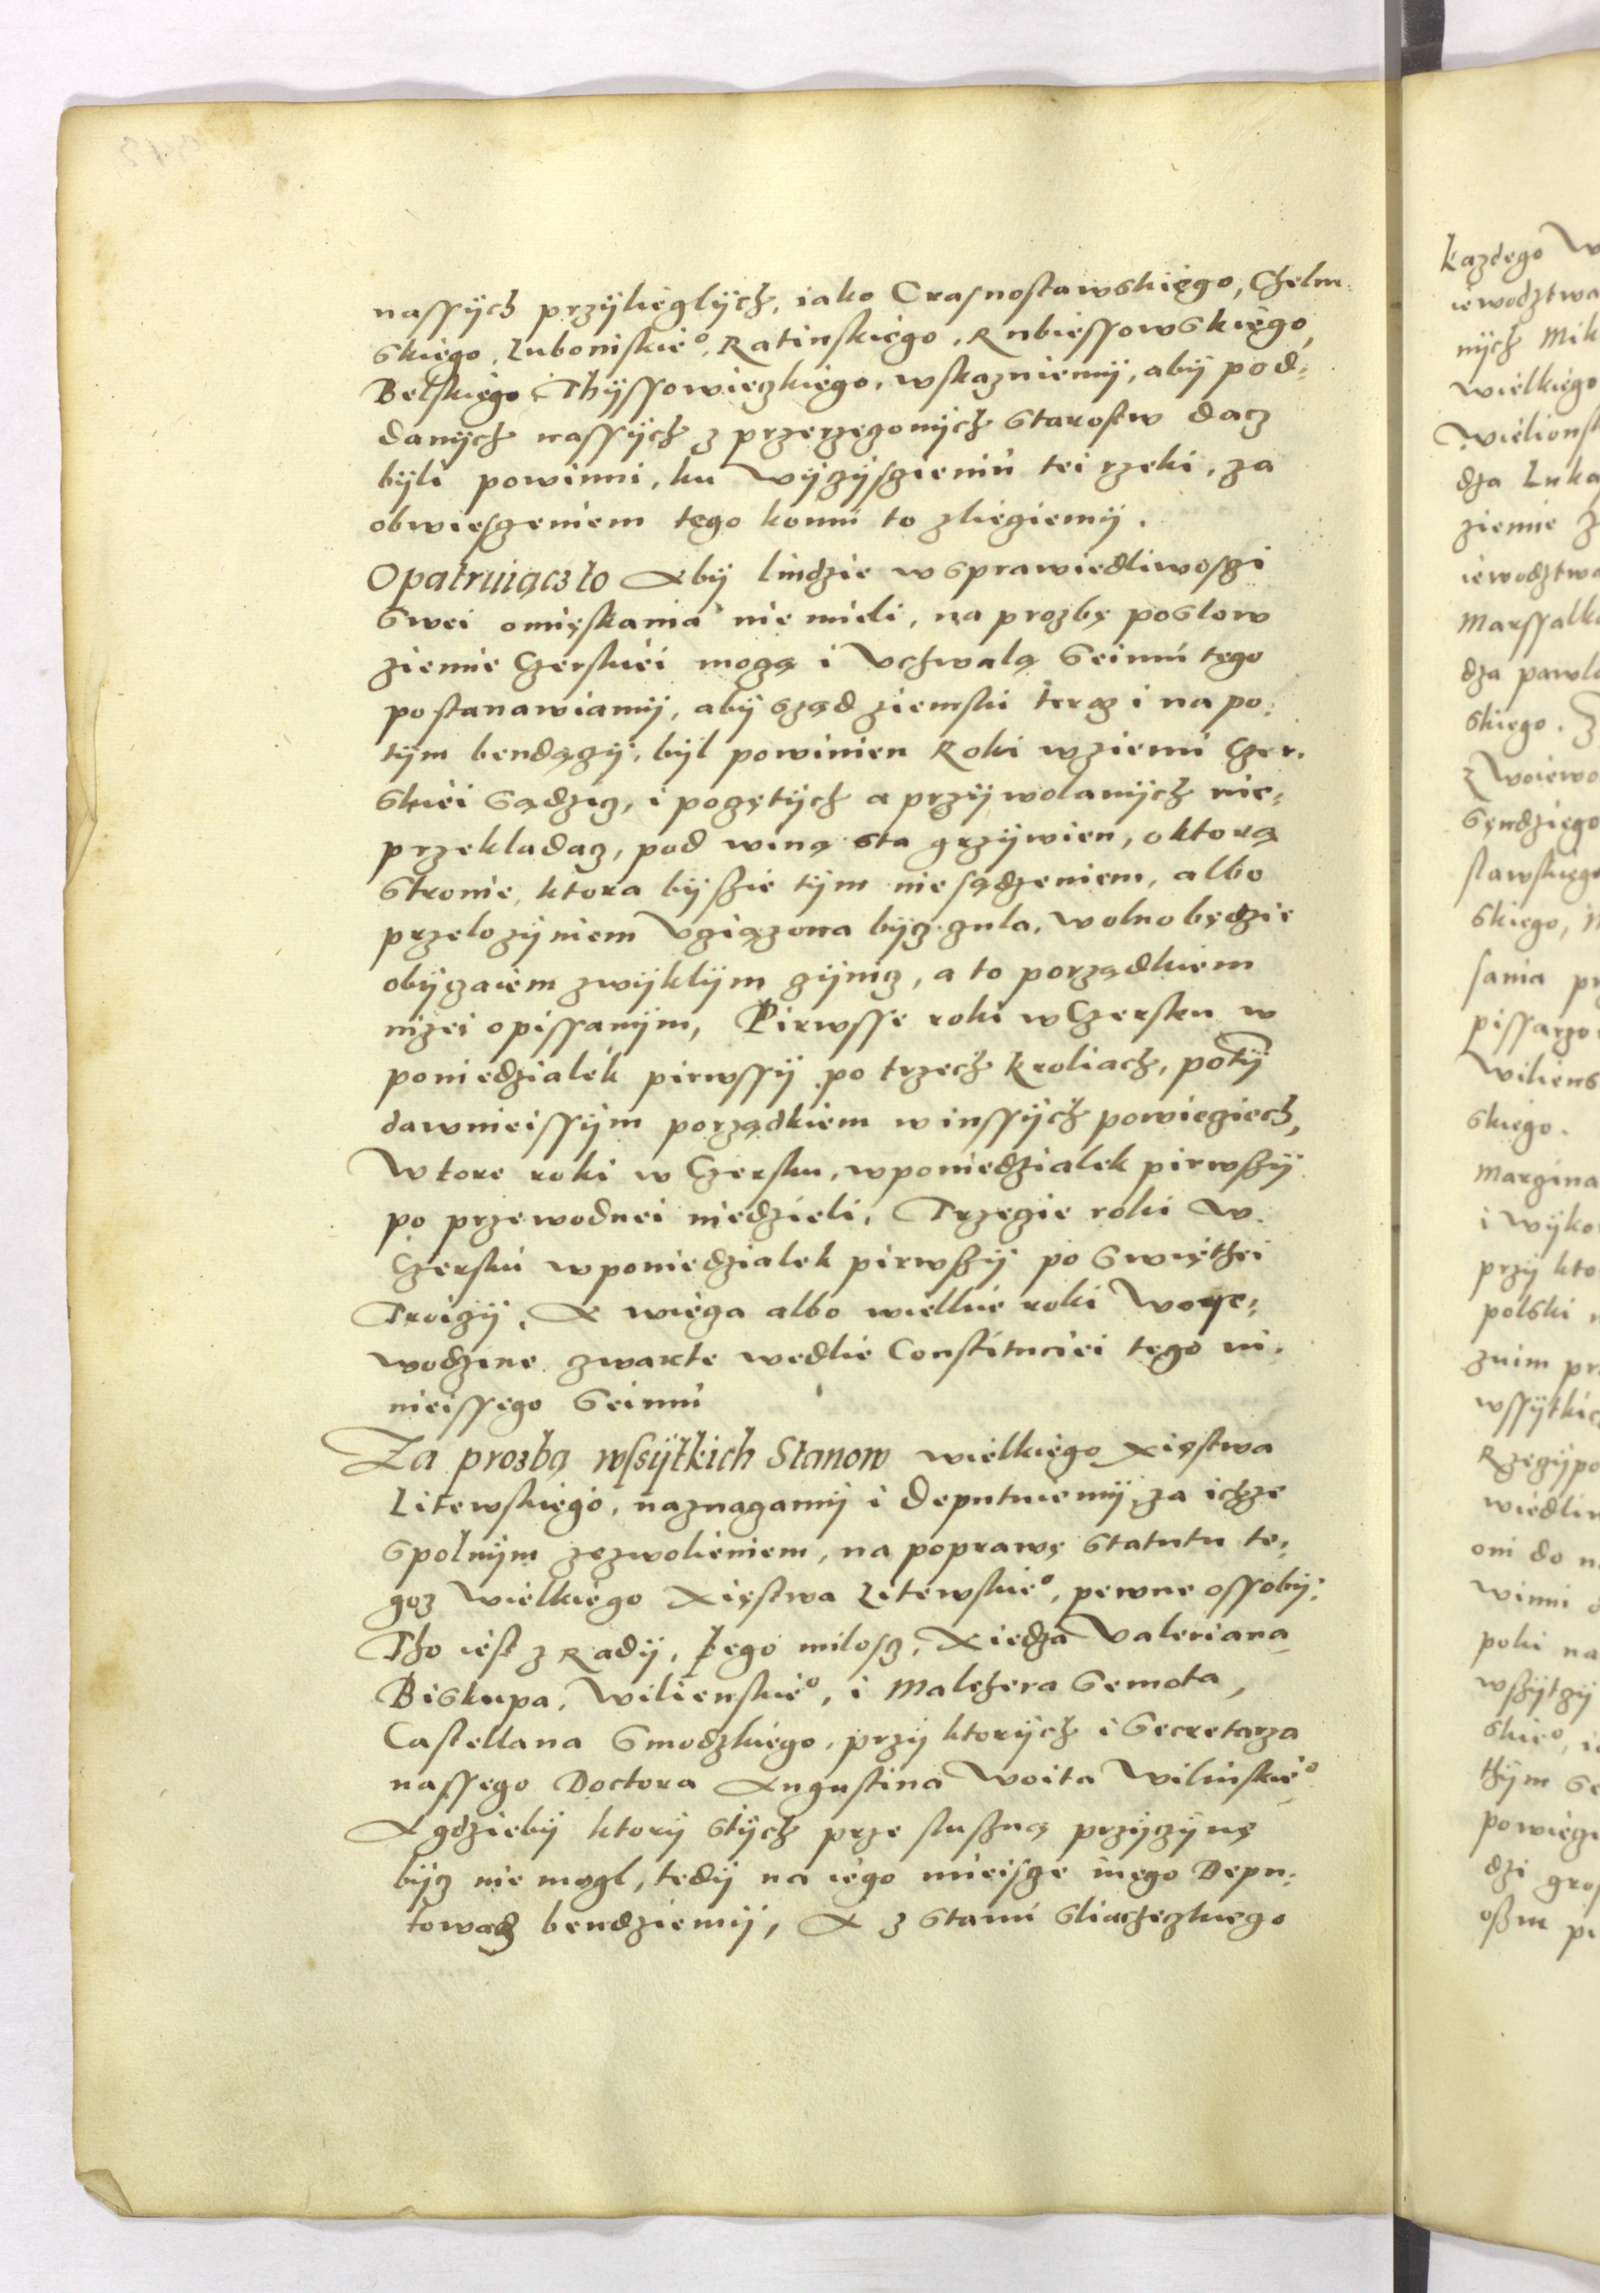 nassÿch przÿlieglÿch, iako Crasnostawskiego, Chelm
skiego, Luboniskie°, Ratinskiego, Rubiessowskiego,
Belskiego i Thÿssowieczkiego, wskazuiemÿ, abÿ pod-
danÿch nassÿch z przerzeczonÿch starostw dacz
bÿli powinni, ku wÿczÿsczieniu tei rzeki, za
obwiesczeniem tego komu to zlieciemÿ.
Opatruiącz to Abÿ liudzie w sprawiedliwosczi
swei omięskania nie mieli, na prozbę poslow
ziemie Czerskiei mogą i vchwalą Seimu tego
postanawiamÿ, abÿ sząd ziemski teraz i na po-
tÿm bendączÿ, bÿl powinien Roki w ziemi Czer-
skiei sądzicz, i poczętÿch a przÿwolanÿch nie-
przekladacz, pod winą sta grzÿwien, o ktorą
stronie, ktora bÿ szie tÿm nie sądzeniem, albo
przelozÿniem vciązona bÿcz czula, wolno będzie
obÿczaiem zwÿklÿm czÿnicz, a to porządkiem
nizei opissanÿm, Pirwsse roki w Czersku w
poniedzialek pirwssÿ po trzech kroliach, potÿ
dawnieissÿm porządkiem w inssÿch powieciech,
Wtore roki w Czersku, w poniedzialek pirwszÿ
po przewodnei niedzieli, Trzecie roki w
Czersku w poniedzialek pirwszÿ po swięthei
Troiczÿ, A wieca albo wielkie roki Woye-
wodzine czwarte wedlie Constituciei tego ni-
nieissego Seimu
Za prozbą wssÿtkich Stanow wielkiego Xięstwa
Litewskiego, naznaczamÿ i deputuiemÿ, za ichze
spolnÿm zezwolieniem, na poprawę statutu te-
goz wielkiego Xięstwa Litewskie°, pewne ossobÿ:
Tho iest z Radÿ, Jego miloscz, Xiedza Valeriana
Biskupa, Wilienskie°, i Malchera Semota,
Castellana Smodzkiego, przÿ ktorÿch i Secretarza
nassego Doctora Augustina Woita Wilinskie°
A gdziebÿ ktorÿ stÿch prze sluszną przÿczÿnę
bÿcz nie mogl, tedÿ na iego mieiscze inego Depu-
towacz bendziemÿ, A z stanu sliacheczkiego
kazdego W
iewodztwa
nÿch Mik
wielkiego
Wielionsk
dza Luka
ziemie
iewodztwa
Marssalk
dza pawl
skiego.
z Woiewo
Sęndziego
slawskieg
skiego,
sania pr
pissarzo
Wiliens
skiego.
Margina
i wÿko
przÿ kto
polski
wssÿtkic
Rzeczÿpo
wiedliw
oni do n
winni
poki na
wszÿtzÿ
skie°,
thÿm se
powieci
dzi gros